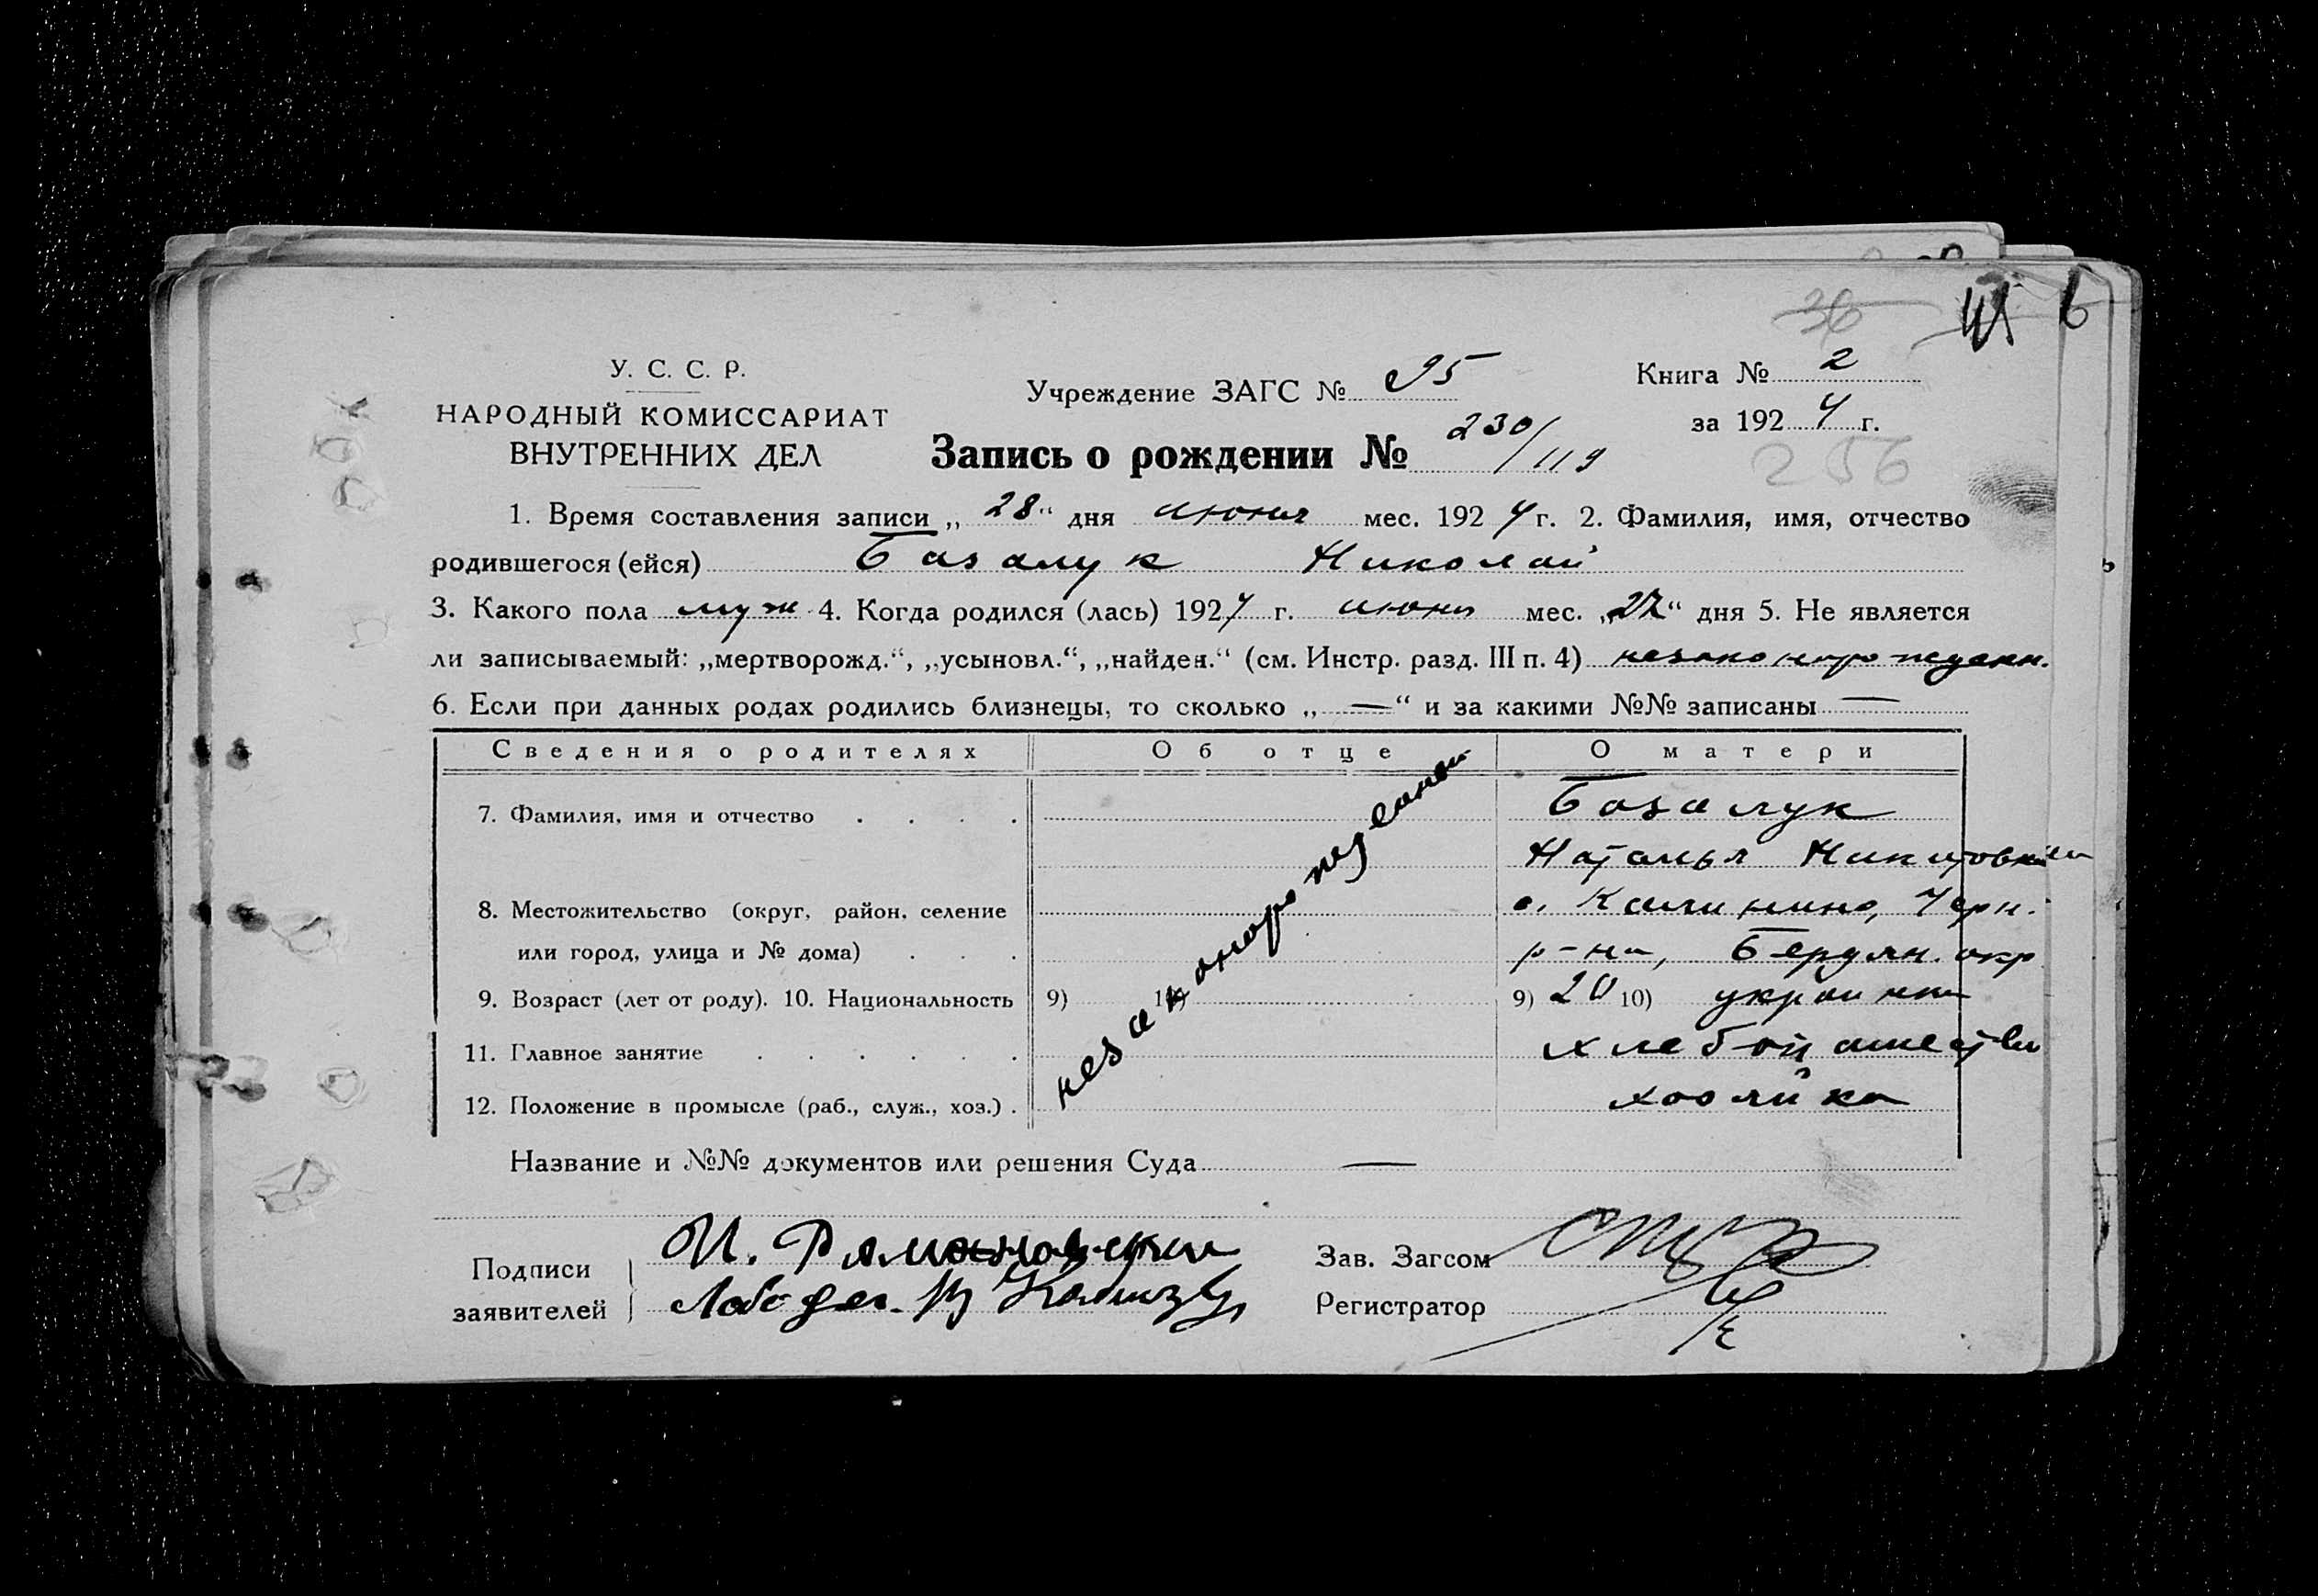 36 41 6
У. С. С. Р.
НАРОДНЫЙ КОМИССАРИАТ
ВНУТРЕННИХ ДЕЛ
Учреждение ЗАГС № 95
Книга № 2
за 1924 г.
Запись о рождении № 230/119
256
1. Время составления записи „ 28 “ дня июня мес. 1924 г. 2. Фамилия, имя, отчество
родившегося (ейся) Базалук Николай
3. Какого пола муж 4. Когда родился (лась) 1924 г. июня мес. „ “ дня 5. Не является
ли записываемый: „мертворожд.“, „усыновл.“, „найден.“ (см. Инстр. разд. III п. 4) незаконнорожденн.
6. Если при данных родах родились близнецы, то сколько „ — “ и за какими №№ записаны —
Сведения о родителях Об отце О матери
7. Фамилия, имя и отчество . . . . Базалук
Наталья Никитовна
8. Местожительство (округ, район, селение с. Калинино, Черн.
или город, улица и № дома) . . . р-на, Бердян. окр
9. Возраст (лет от роду). 10. Национальность 9) 10) 9) 20 10) украинка
11. Главное занятие . . . . . . хлебопашество
12. Положение в промысле (раб., служ., хоз.) . хозяйка
незаконорожденный
Название и №№ документов или решения Суда —
Подписи
заявителей
И.
Лобода
Зав. Загсом
Регистратор